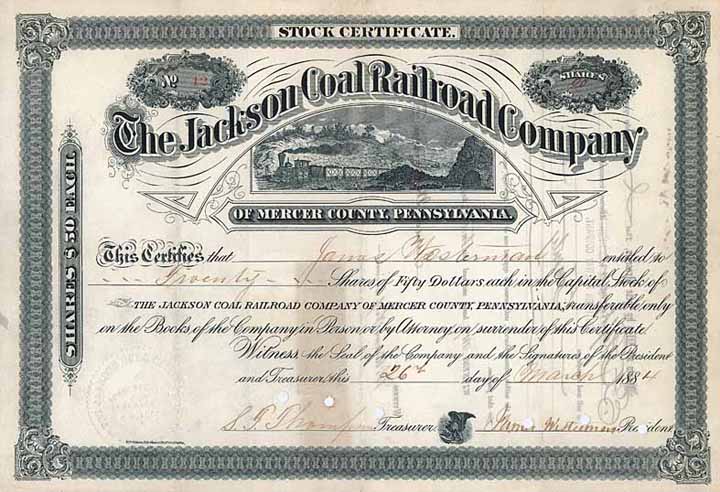 STOCK CERTIFICATE.
No 12
SHARES 20
The Jackson Coal Railroad Company
OF MERCER COUNTY, PENNSYLVANIA.
SHARES $50 EACH
This Certifies that James Westerman entitled to
Twenty Shares of Fifty Dollars each in the Capital Stock of
THE JACKSON COAL RAILROAD COMPANY OF MERCER COUNTY, PENNSYLVANIA, transferable only
on the Books of the Company in Person or by Attorney on surrender of this Certificate.
Witness the Seal of the Company and the Signatures of the President
and Treasurer, this 26th day of March 1884
Treasurer James Westerman President